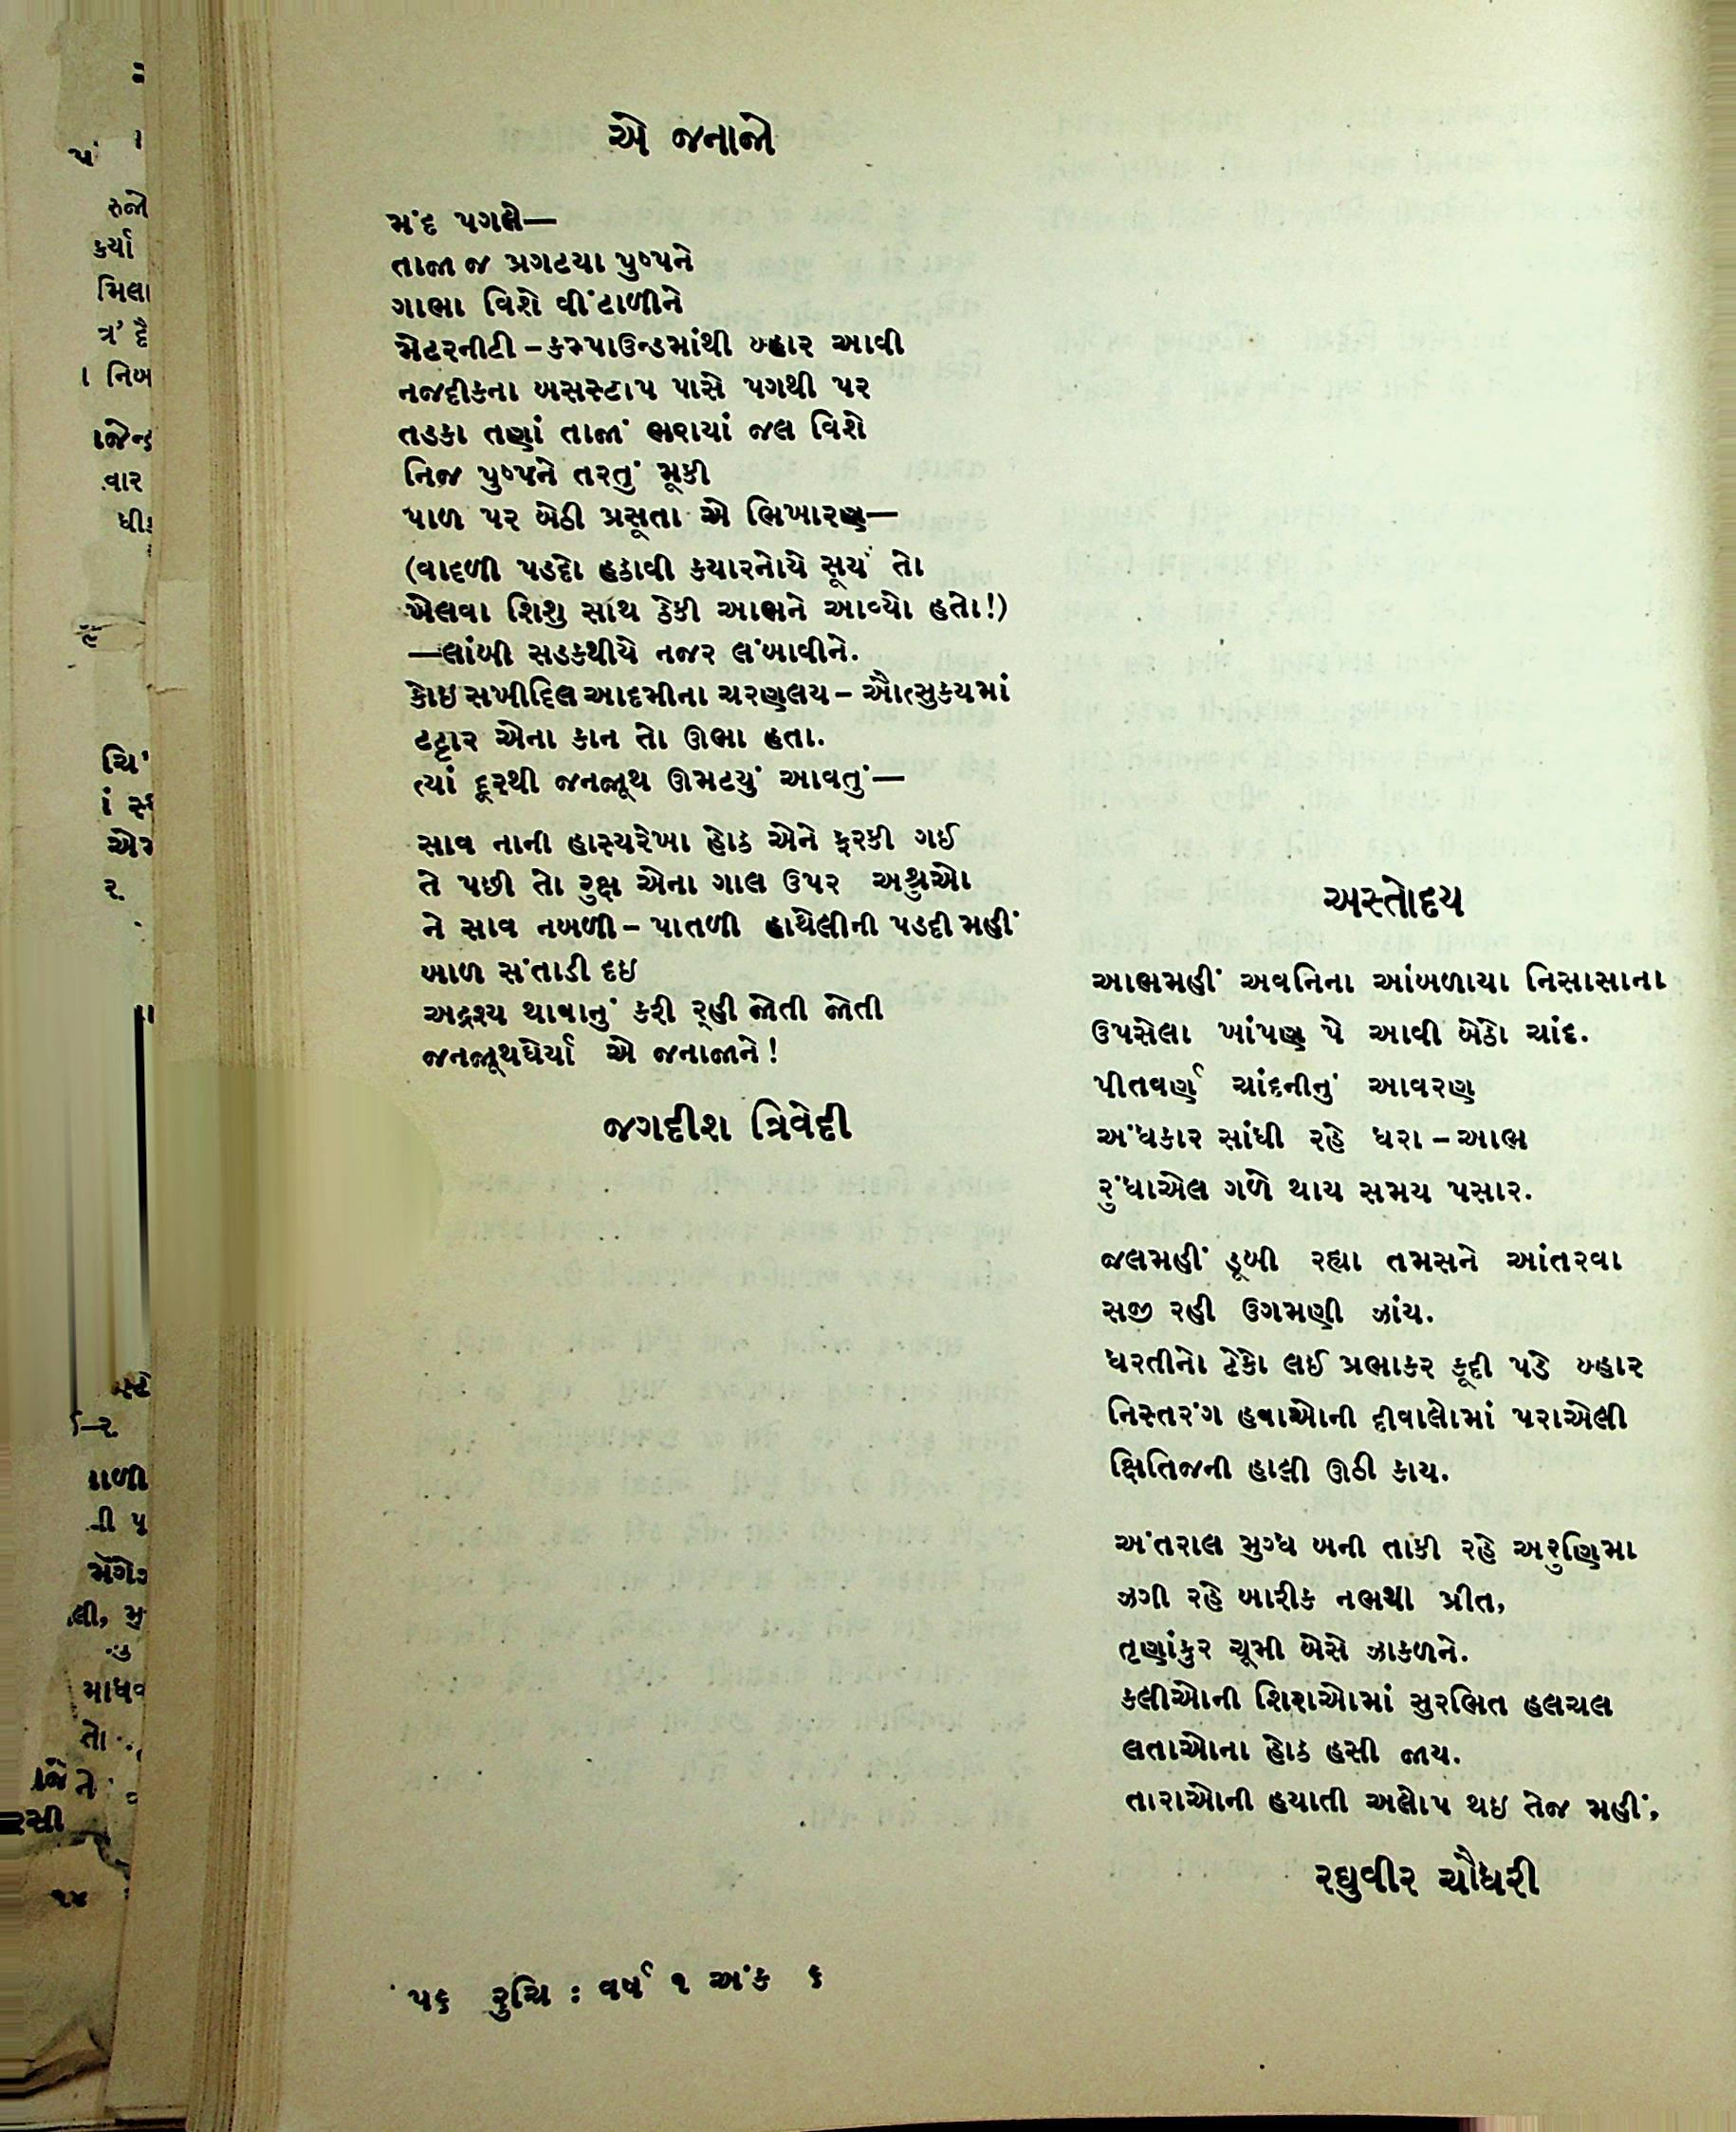 એ જનાજો
મંદ પગલે—
તાજા જ પ્રગટયા પુષ્પને
ગાભા વિશે વીંટાળીને
મેટરનીટી – કમ્પાઉન્ડમાંથી બ્હાર આવી
નજદીકના બસસ્ટાપ પાસે પગથી પર
તડકા તણાં તાજાં ભરાયાં જલ વિશે
નિજ પુષ્પને તરતું મૂકી
પાળ પર બેઠી પ્રસૂતા એ ભિખારણ—
(વાદળી પડદો હઠાવી કયારનોયે સૂર્ય તો
ખેલવા શિશુ સાથ ઠેકી આભને આવ્યો હતો!)
—લાંબી સડકથીયે નજર લંબાવીને.
કોઇ સખીદિલ આદમીના ચરણલય – ઔત્સુકયમાં
ટટ્ટાર એના કાન તો ઊભા હતા.
ત્યાં દૂરથી જનજૂથ ઊમટયું આવતું—
સાવ નાની હાસ્યરેખા હોઠ એને ફરકી ગઈ
તે પછી તો રુક્ષ એના ગાલ ઉપર અશ્રુઓ
ને સાવ નબળી – પાતળી હાથેલીની પડદી મહીં
બાળ સંતાડી દઇ
અદ્રશ્ય થાવાનું કરી ર્‌હી જોતી જોતી
જનજૂથઘેર્યા એ જનાજાને!
જગદીશ ત્રિવેદી
અસ્તોદય
આભમહીં અવનિના આંબળાયા નિસાસાના
ઉપસેલા ખાંપણ પે આવી બેઠો ચાંદ.
પીતવર્ણ ચાંદનીનું આવરણ
અંધકાર સાંધી રહે ધરા – આભ
રુંધાએલ ગળે થાય સમય પસાર.
જલમહીં ડૂબી રહ્યા તમસને આંતરવા
સજી રહી ઉગમણી ઝાંય.
ધરતીનો ટેકો લઈ પ્રભાકર કૂદી પડે બ્હાર
નિસ્તરંગ હવાઓની દીવાલોમાં પરાએલી
ક્ષિતિજની હાલી ઊઠી કાય.
અંતરાલ મુગ્ધ બની તાકી રહે અરુણિમા
ઝગી રહે બારીક નભથી પ્રીત,
તૃણાંકુર ચૂમી બેસે ઝાકળને.
કલીઓની શિરાઓમાં સુરભિત હલચલ
લતાઓના હોઠ હસી જાય.
તારાઓની હયાતી અલોપ થઇ તેજ મહીં,
રઘુવીર ચૌધરી
૫૬ રુચિ : વર્ષ ૧ અંક ૬